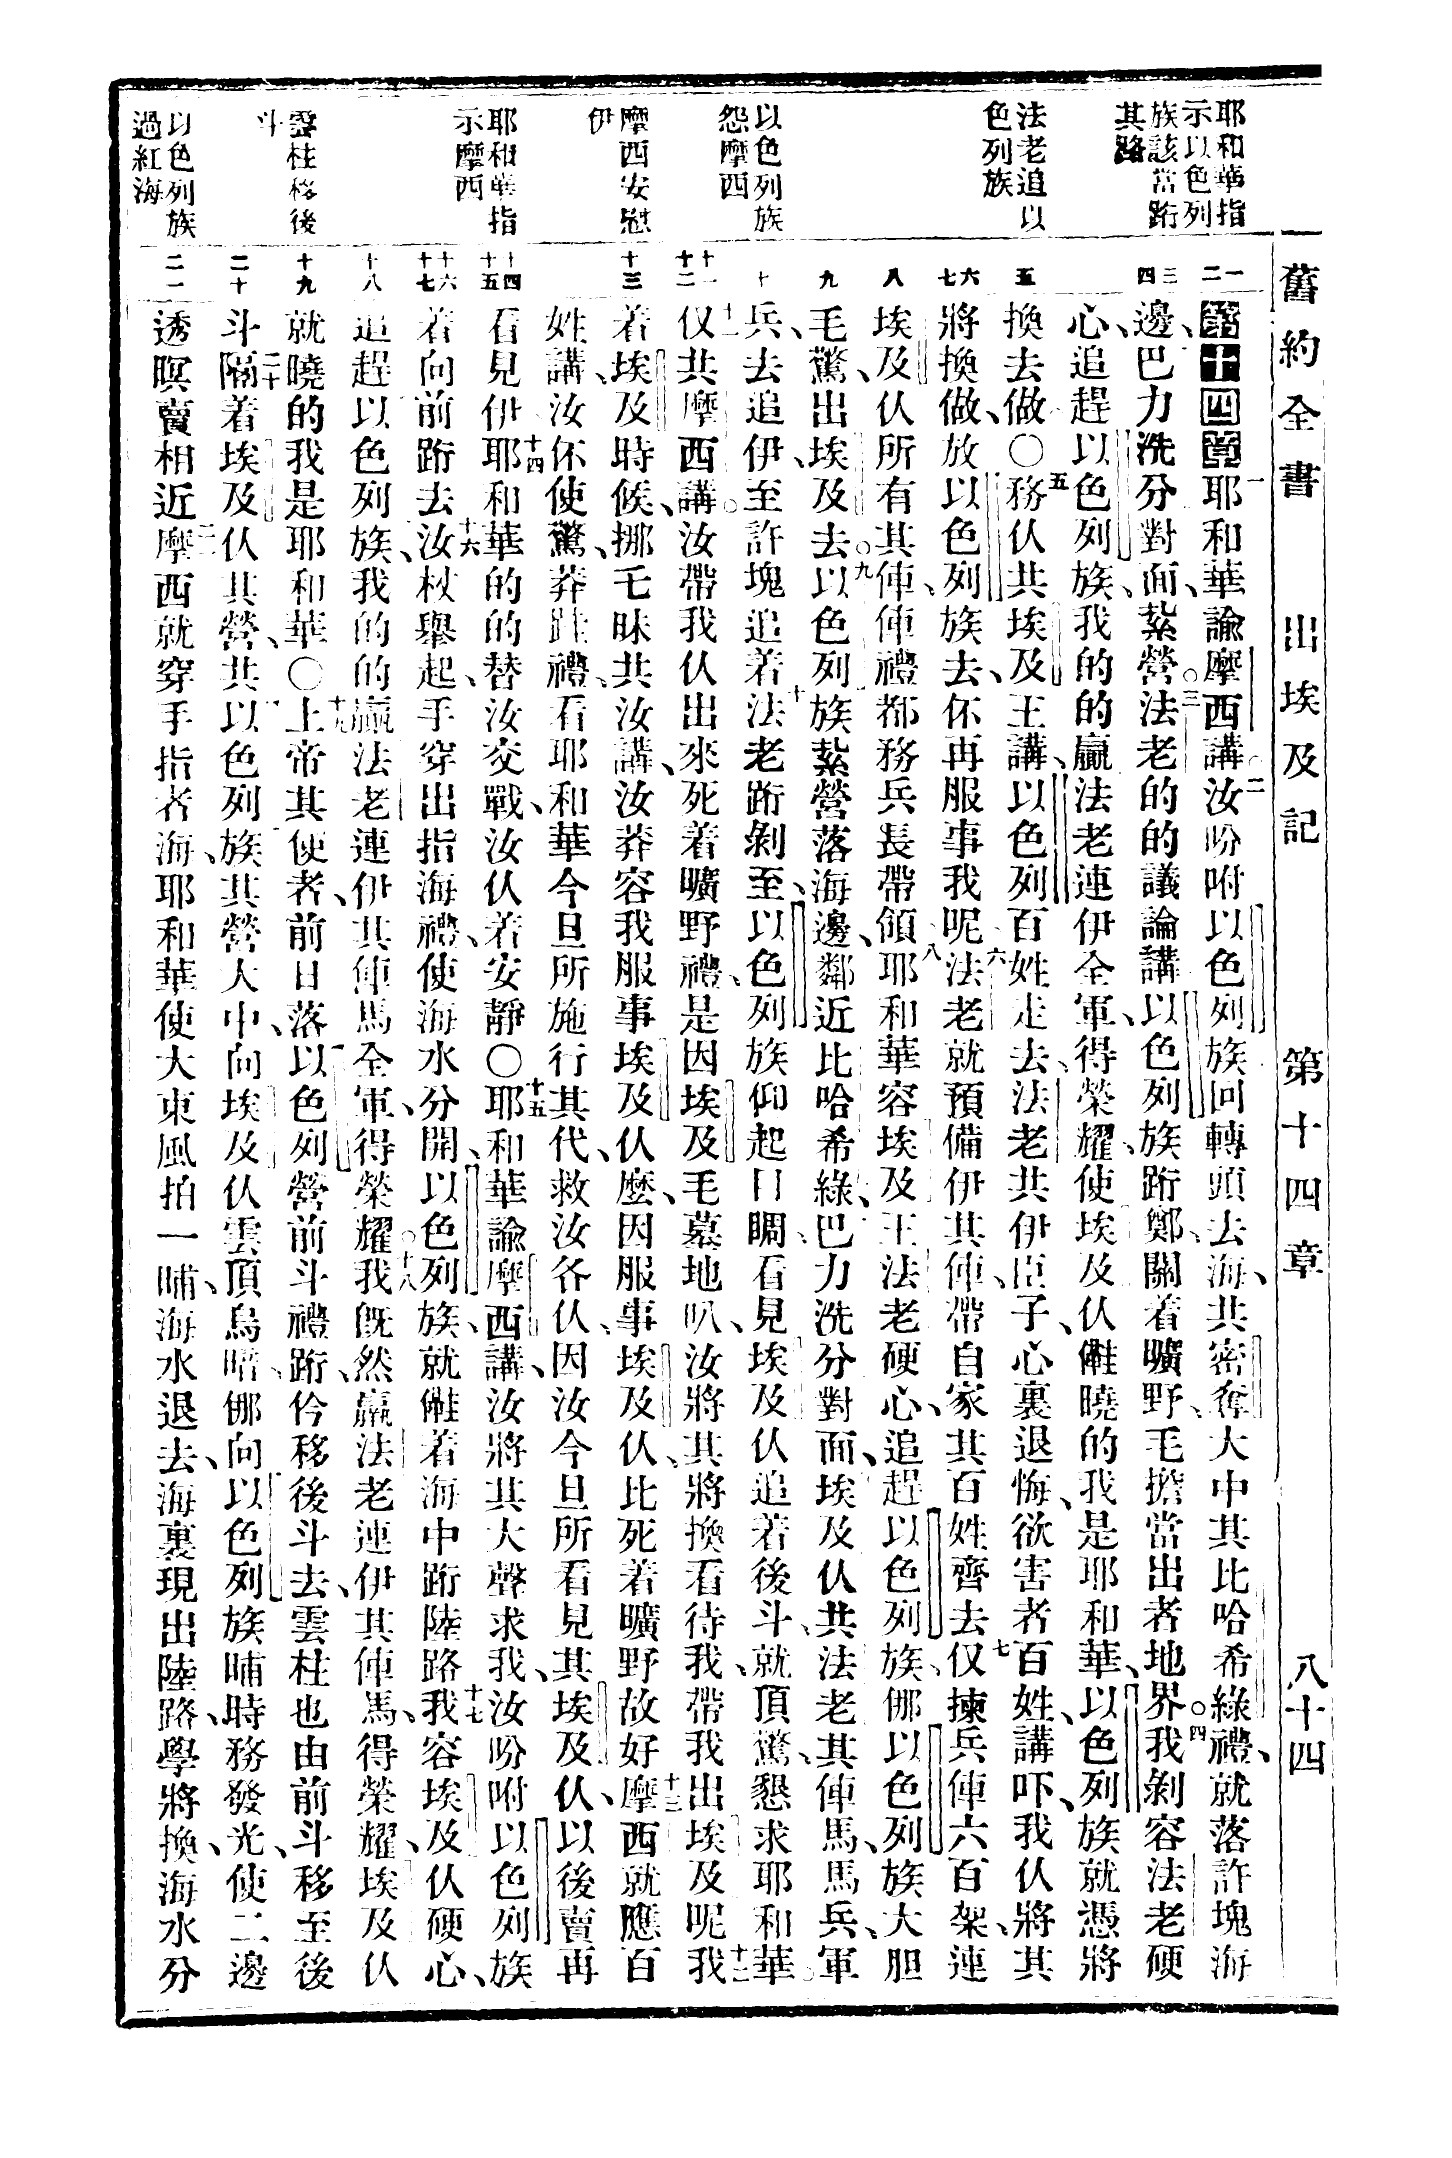 舊約全書 出埃及記 第十四章 八十四
耶和華指
示以色列
族該當跡
其路
法老追以
色列族
以色列族
怨摩西
摩西安慰
伊
耶和華指
示摩西
雲柱移後
斗
以色列族
過紅海
一 二 三 四 五 六 七 八 九 十 十一 十二 十三 十四 十五 十六 十七 十八 十九 二十 二一
第十四章一耶和華諭摩西講、○二汝吩咐以色列族回轉頭去海、共密奪大中其比哈希綠禮、就落許塊海
邊、巴力洗分對面、紮營○三法老的的議論講以色列族跡鄭、關着曠野、乇擔當出者地界○四我剝容法老硬
心、追趕以色列族、我的的贏法老連伊全軍、得榮耀、使埃及仈儺曉的我是耶和華、以色列族就憑將
換去做○五務仈共埃及王講、以色列百姓走去、六法老共伊臣子、心裏退悔、欲害者百姓、講吓、我仈將其
將換做、放以色列族去、伓再服事我呢法老就預備伊其俥、帶自家其百姓齊去七仅揀兵俥六百架、連
埃及仈所有其俥、俥禮都務兵長帶領八耶和華容埃及王法老硬心、追趕以色列族、㑚以色列族大胆
乇驚、出埃及去○九以色列族紮營落海邊、鄰近比哈希綠、巴力洗分對面、埃及仈共法老其俥馬、馬兵、軍
兵、去追伊、至許塊追着十法老跡剝至、以色列族仰起目睭、看見埃及仈追着後斗、就頂驚、懇求耶和華○
十一仅共摩西講○汝帶我仈出來死着曠野禮、是因埃及乇墓地叭、汝將其將換看待我、帶我出埃及呢十二我
着埃及時候、挪乇昧共汝講、汝莽容我服事埃及仈麼、因服事埃及仈、比死着曠野故好十三摩西就應百
姓講、汝伓使驚、莽跬禮、看耶和華今旦所施行其代、救汝各仈、因汝今旦所看見其埃及仈、以後賣再
看見伊十四耶和華的的替汝交戰、汝仈着安靜○十五耶和華諭摩西講、汝將其大聲求我、汝吩咐以色列族
着向前跡去十六汝杖舉起、手穿出指海禮、使海水分開、以色列族、就儺着海中跡陸路十七我容埃及仈硬心、
追趕以色列族、我的的贏法老連伊其俥馬全軍、得榮耀○十八我既然贏法老連伊其俥馬、得榮耀、埃及仈
就曉的我是耶和華○十九上帝其使者、前日落以色列營前斗禮跡、仱移後斗去、雲柱也由前斗移至後
斗二十隔着埃及仈其營、共以色列族、其營大中、向埃及仈雲頂烏暗、㑚向以色列族晡時務發光、使二邊
透暝賣相近二一摩西就穿手指者海、耶和華使大東風拍一晡、海水退去、海裏現出陸路、學將換海水分